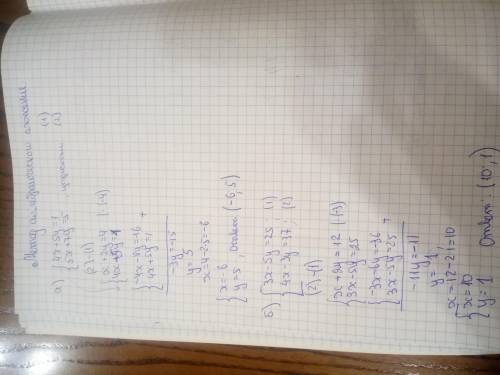 Метод алгебраического сложения
а) { 4x+5y=1 (1)
{ 5x+7y=5 (2)
(2)-(1)
{ x+2y=4 | (-4)
{ 4x+5y=1
{ -4x-8y=-16 +
{ 4x+5y=1
-3y=-15
y=5
x=4-2·5=-6
{ x=-6
{ y=5, Ответ (-6;5)
б) { 3x-5y=25 (1)
{ 4x-3y=37; (2)
(2)-(1)
{ x+2y=12 | (-3)
{ 3x-5y=25
{ -3x-6y=-36 +
{ 3x-5y=25
-11y=-11
y=1
x=12-2·1=10
{ x=10
{ y=1 Ответ: (10;1)